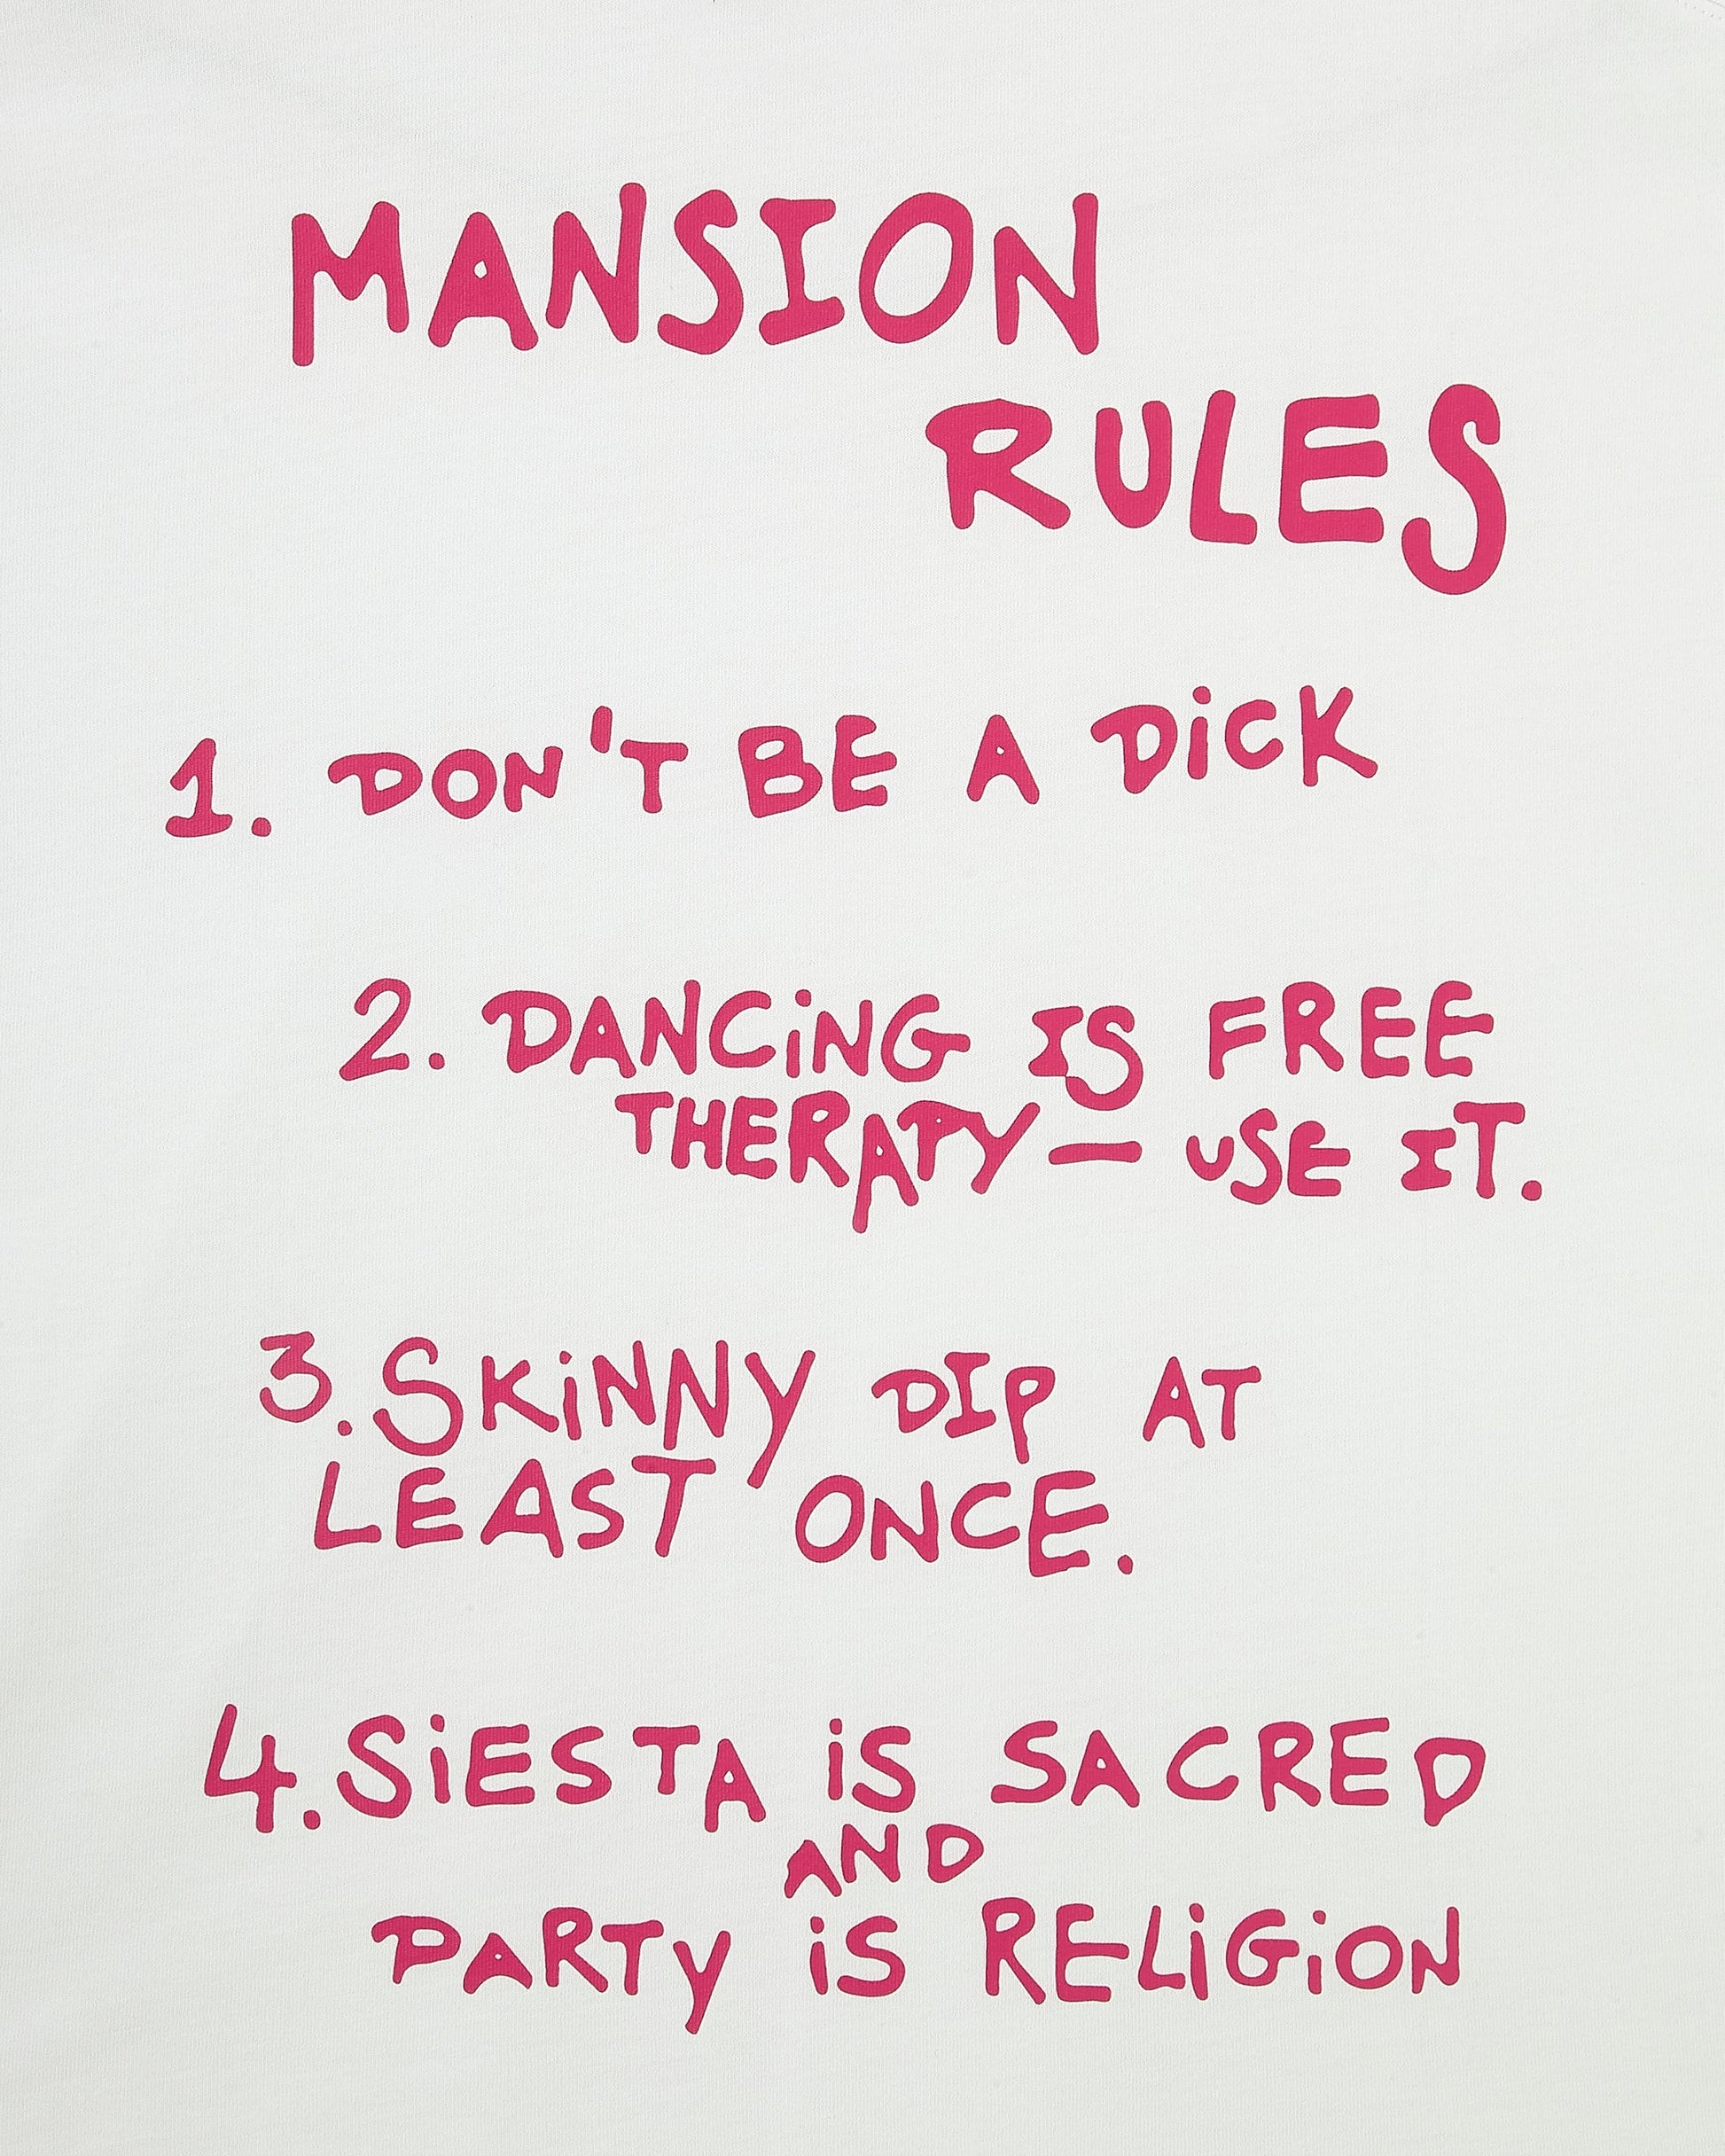 MANSION
RULES
1. DON'T BE A DiCK
2. DANCiNG IS FREE
THERAPY — USE IT.
3. SKiNNY DIP AT
LEAST ONCE.
4. SiESTA iS SACRED
AND
PARTY iS RELiGiON